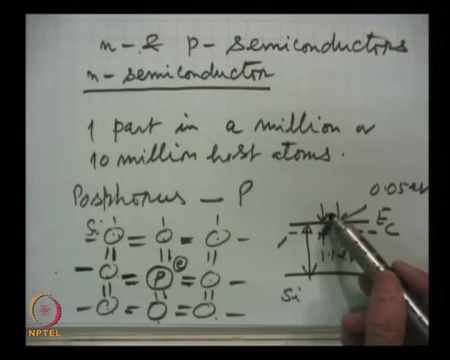 n- & p- semiconductors
n- semiconductor
1 part in a million or
10 million host atoms.
Posphorus - P
0.05 eV
Si
Ec
e
P
Si
NPTEL